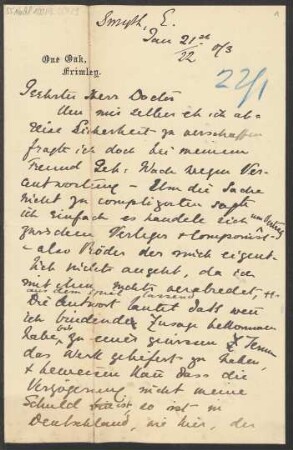 Smyth, E.
Jan 21st
22 0/3
One Oak,
Frimley.
22/1
Geehrter Herr Doctor
Um mir selber eh ich ab-
reise Sicherheit zu verschaffen
fragte ich doch bei meinem
Freund Geh: Wach wegen Ver-
antwortung – Um die Sache
nicht zu compligarten sagte
ich einfach es handele sich um Vertrag
zwischen Verleger + Componist
– also Röder der mich eigent-
lich nichts angeht, da ich
mit ihm nichts verabredet,
aus dem Spiel lassend
Die Antwort lautet dass wenn
ich bindende Zusage bekommen
habe bis zu einem gewissen Termin
das Werk geliefert zu haben,
+ beweisen kann dass die
Verzögerung nicht meine
Schuld ist, so ist in
Deutschland, wie hier, der